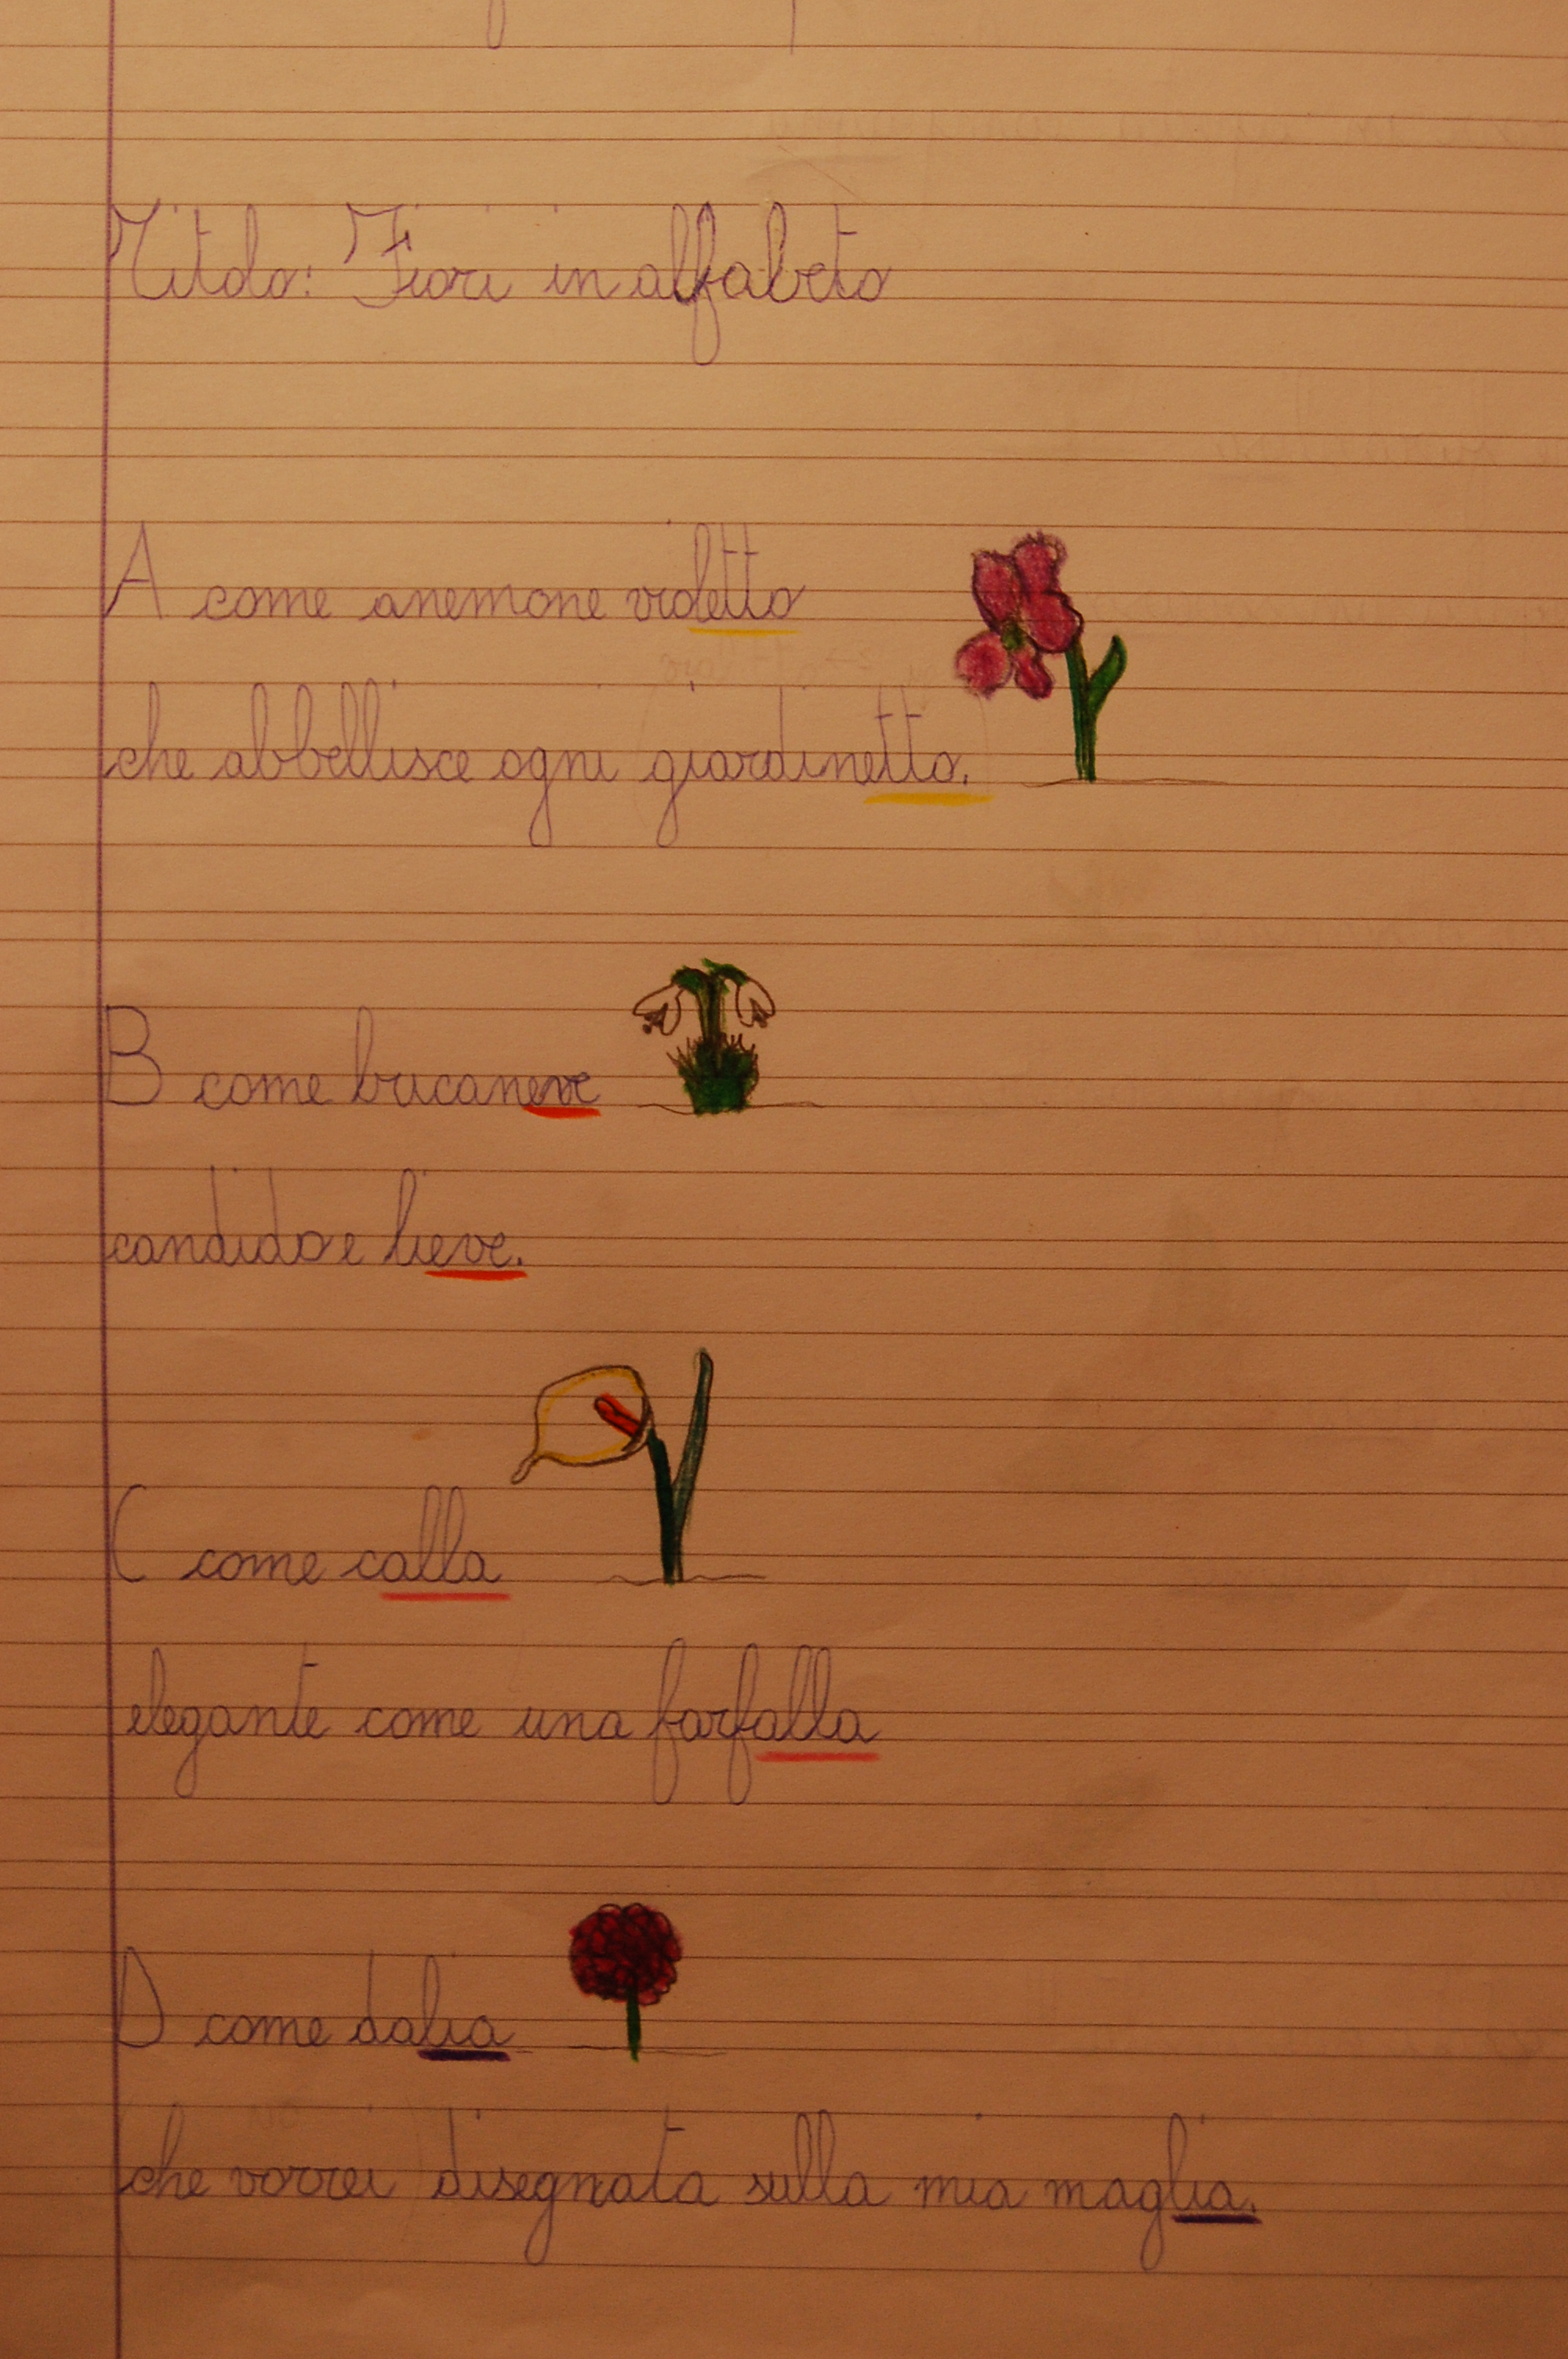 Titolo: Fiori in alfabeto
A come anemone violetto
che abbellisce ogni giardinetto.
B come bucaneve
candido e lieve.
C come calla
elegante come una farfalla
D come dalia
che vorrei disegnata sulla mia maglia.